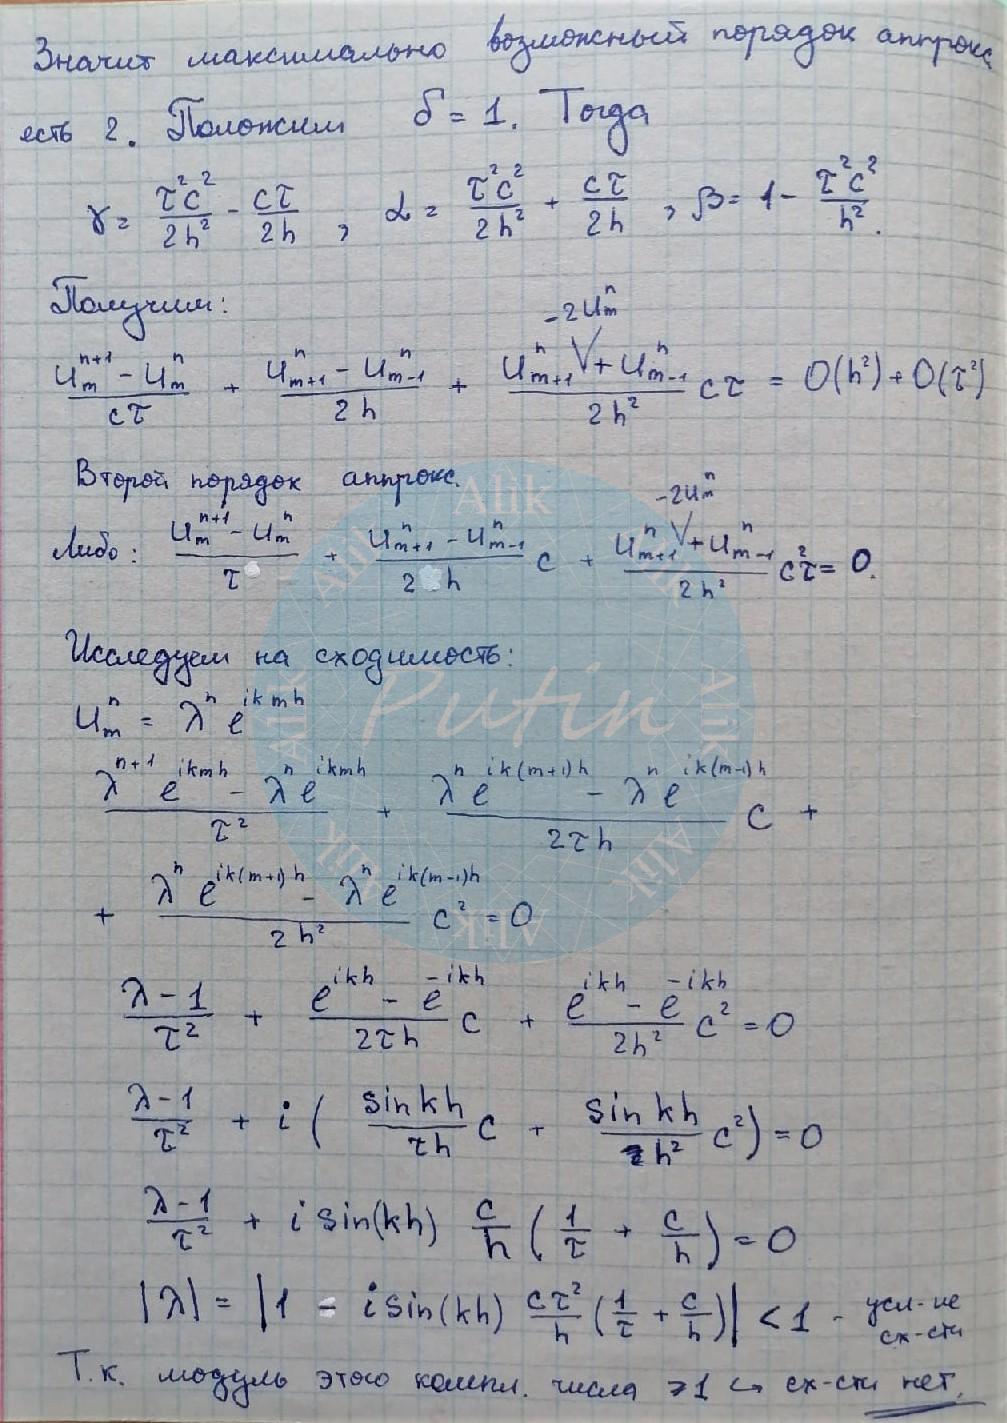 Значит максимально возможный порядок аппрокс
есть 2. Положим δ = 1. Тогда
γ = τ²c²/2h² - cτ/2h , α = τ²c²/2h² + cτ/2h , β = 1 - τ²c²/h² .
Получим:
-2Uₘⁿ
(Uₘⁿ⁺¹ - Uₘⁿ)/cτ + (Uₘ₊₁ⁿ - Uₘ₋₁ⁿ)/2h + (Uₘ₊₁ⁿ ∨ + Uₘ₋₁ⁿ)/2h² cτ = O(h²) + O(τ²)
Второй порядок аппрокс.
-2Uₘⁿ
Либо: (Uₘⁿ⁺¹ - Uₘⁿ)/τ + (Uₘ₊₁ⁿ - Uₘ₋₁ⁿ)/2h c + (Uₘ₊₁ⁿ ∨ + Uₘ₋₁ⁿ)/2h² c²τ = 0.
Исследуем на сходимость:
Uₘⁿ = λⁿ e^{ikmh}
(λⁿ⁺¹ e^{ikmh} - λⁿ e^{ikmh})/τ² + (λⁿ e^{ik(m+1)h} - λⁿ e^{ik(m-1)h})/2τh c +
+ (λⁿ e^{ik(m+1)h} - λⁿ e^{ik(m-1)h})/2h² c² = 0
(λ-1)/τ² + (e^{ikh} - e^{-ikh})/2τh c + (e^{ikh} - e^{-ikh})/2h² c² = 0
(λ-1)/τ² + i ( sin kh/τh c + sin kh/h² c² ) = 0
(λ-1)/τ² + i sin(kh) c/h ( 1/τ + c/h ) = 0
|λ| = | 1 - i sin(kh) cτ²/h ( 1/τ + c/h ) | < 1 - усл-ие
сх-сти
Т.к. модуль этого компл. числа ⩾1 ↪ сх-сти нет.
Alik
Alik
Alik
Alik
Alik
Alik
Alik
Alik
Putin